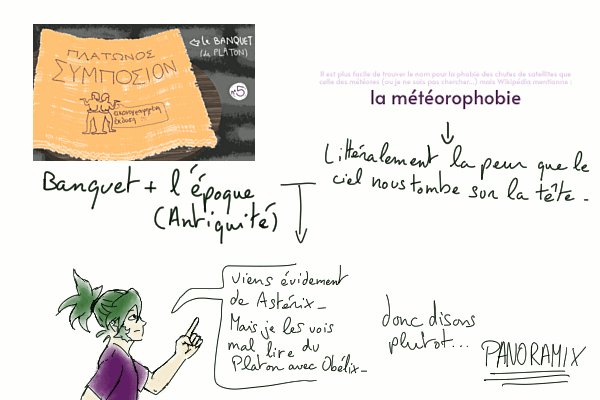 ΠΛΑΤΩΝΟΣ
ΣΥΜΠΟΣΙΟΝ
Le BANQUET
(de PLATON)
n°5
εικονογραφημένη
έκδοση
Banquet + l'époque
(Antiquité)
Il est plus facile de trouver le nom pour la phobie des chutes de satellites que
celle des météores (ou je ne sais pas chercher...) mais Wikipédia mentionne :
la météorophobie
Littéralement la peur que le
ciel nous tombe sur la tête.
viens évidement
de Astérix.
Mais je les vois
mal lire du
Platon avec Obélix.
donc disons
plutôt...
PANORAMIX